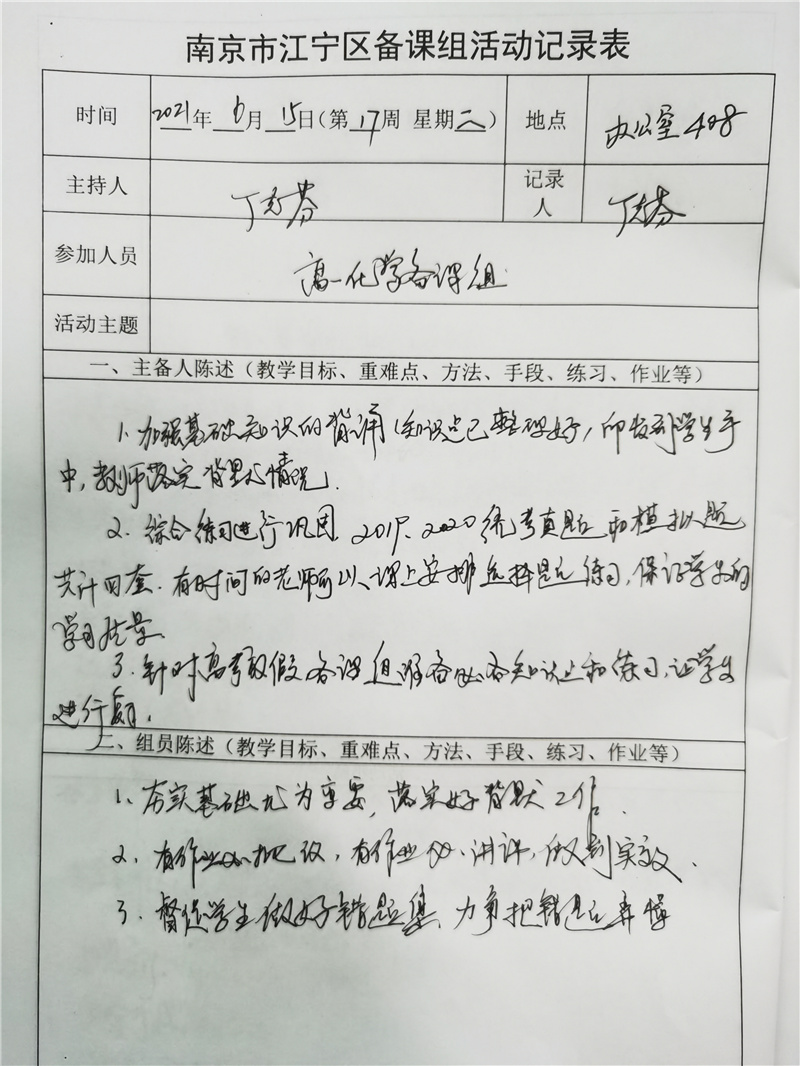 南京市江宁区备课组活动记录表
时间 2021年 6月 15日(第 17周 星期二) 地点 办公室408
主持人 丁志芬 记录人 丁志芬
参加人员 高一化学备课组
活动主题
一、主备人陈述(教学目标、重难点、方法、手段、练习、作业等)
1、加强基础知识的背诵(知识点已整理好,印发到学生手
中,教师落实背默情况)
2、综合练习进行巩固、2019、2020统考真题和模拟题
共计四套.有时间的老师可以课上安排选择题练习,保证学生的
学习质量.
3、针对高考放假,备课组准备必备知识点和练习,让学生
进行复习.
二、组员陈述(教学目标、重难点、方法、手段、练习、作业等)
1、夯实基础尤为重要,落实好背默工作.
2、有作业必批改,有作业必讲评,做到实效.
3、督促学生做好错题集、力争把错题弄懂